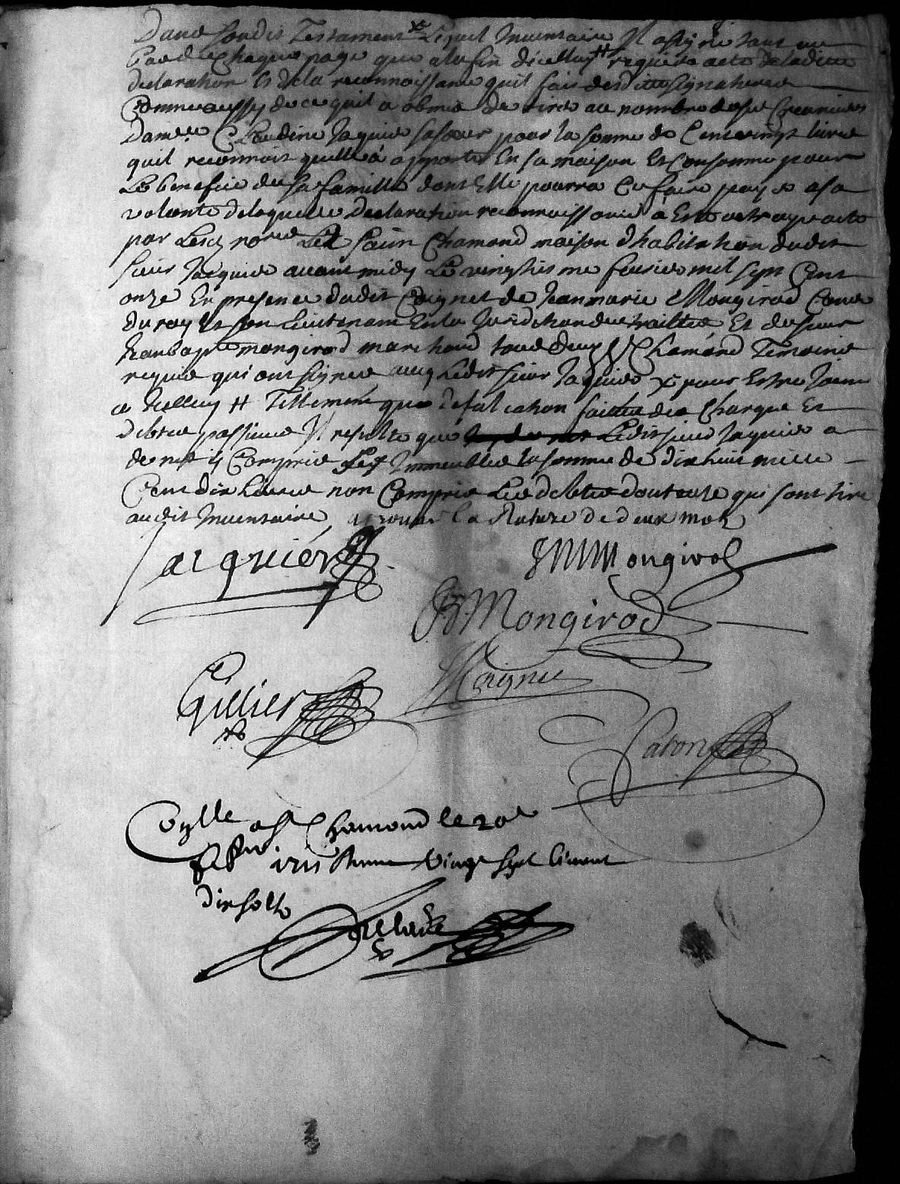 Dans sondit Testament x Lequel Inventaire Il a signé tant au
bas de chaque page que a la fin dicelluy # requis acte de ladite
declaration Et de la reconnoissance quil fait desdittes signatures
Comme aussy de ce quil a obmis de tirer au nombre de ses Creanciers
Dam.lle Claudine Jaquier sa sœur pour la somme de Cent vingt livres
quil reconnoit quelle a apporté En sa maison Et Consommé pour
Le benefice de sa famille dont Elle pourra se faire payer a sa
volonté de laquelle declaration reconnoissance a Esté octroyé acte
par Les no.res Let Saint Chamond maison d'habitation dudit
sieur Jaquier avant midy Le vingtiesme fevrier mil sept Cent
onze En presence dudit Coignet de Jean marie Mongirod Cons.er
du roy Et son Lieutenant En la Jurediction des traittes Et de sieur
Jean bap.te mongirod marchand tous deux St Chamond Temoins
requis qui ont signés avec Ledit sieur Jaquier x pour Estre Joint
a Icelluy # Tellement que defalcation faitte des Charges Et
debtes passives Il resulte que Ledit sieur Jaquier a
de net y Compris Ses Immeubles la somme de dixhuit mille
Cent dix Livres non Compris Les debtes douteuses qui sont tirés
audit Inventaire aprouvé la Rature de deux mots
Jacquier JMMongirod
JBMongirod
Gillier
Paton
Conllé a St Chamond le 20e
febv.r 1711 Receu vingt sept
dix solls